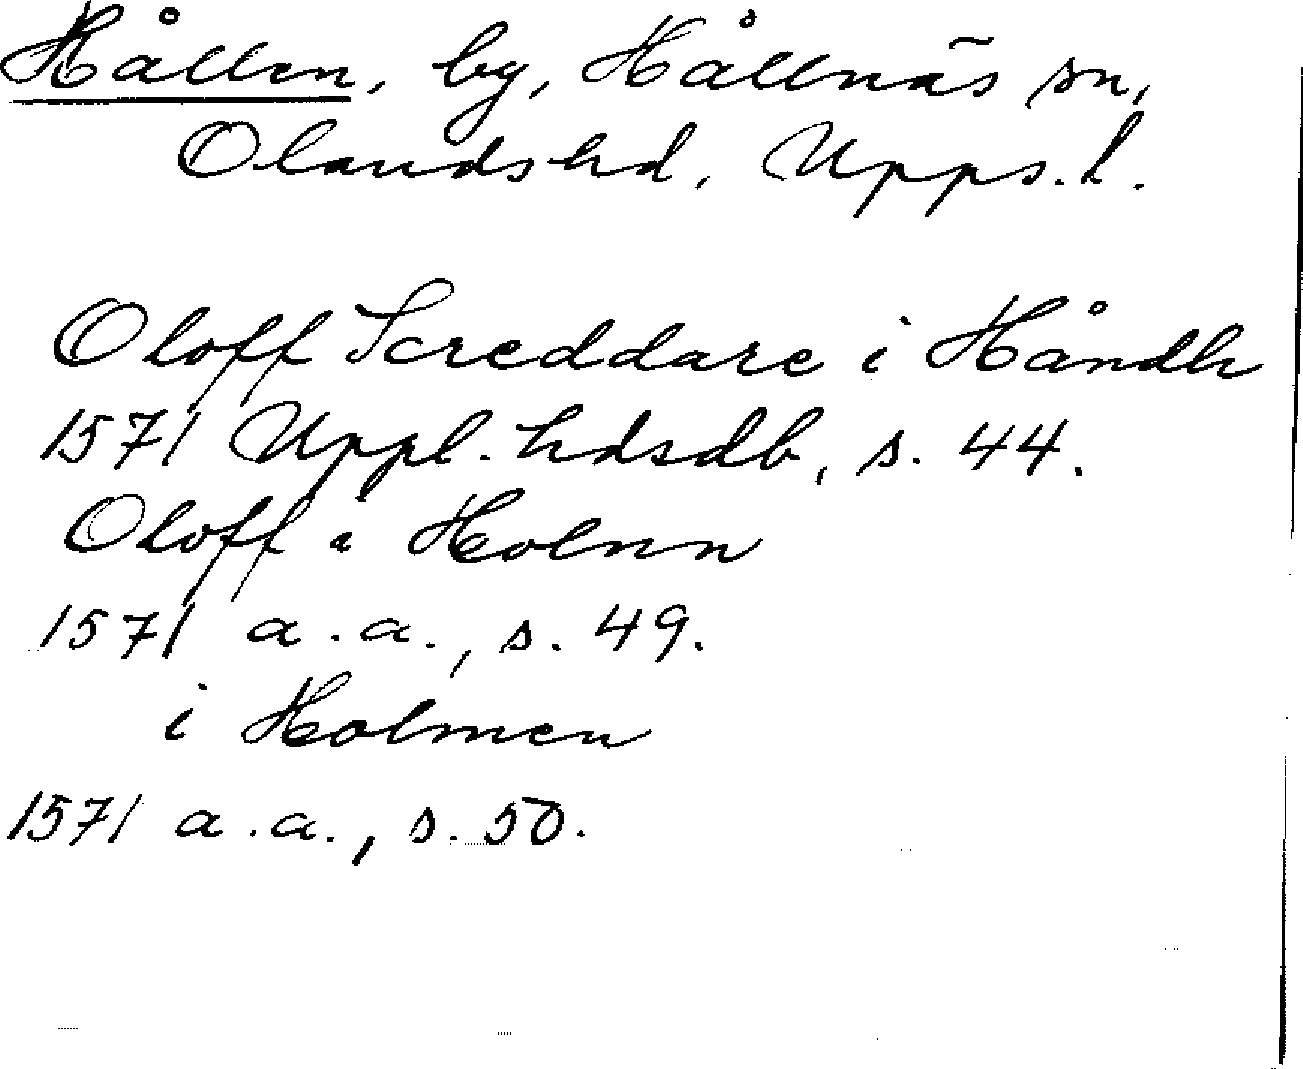 Hållen, by, Hållnäs sn,
Olandshd, Upps. l.
Oloff Screddare i Håndh
1571 Uppl. hdsdb, s. 44.
Oloff i Holnn
1571 a.a., s. 49.
i Holmen
1571 a.a., s. 50.